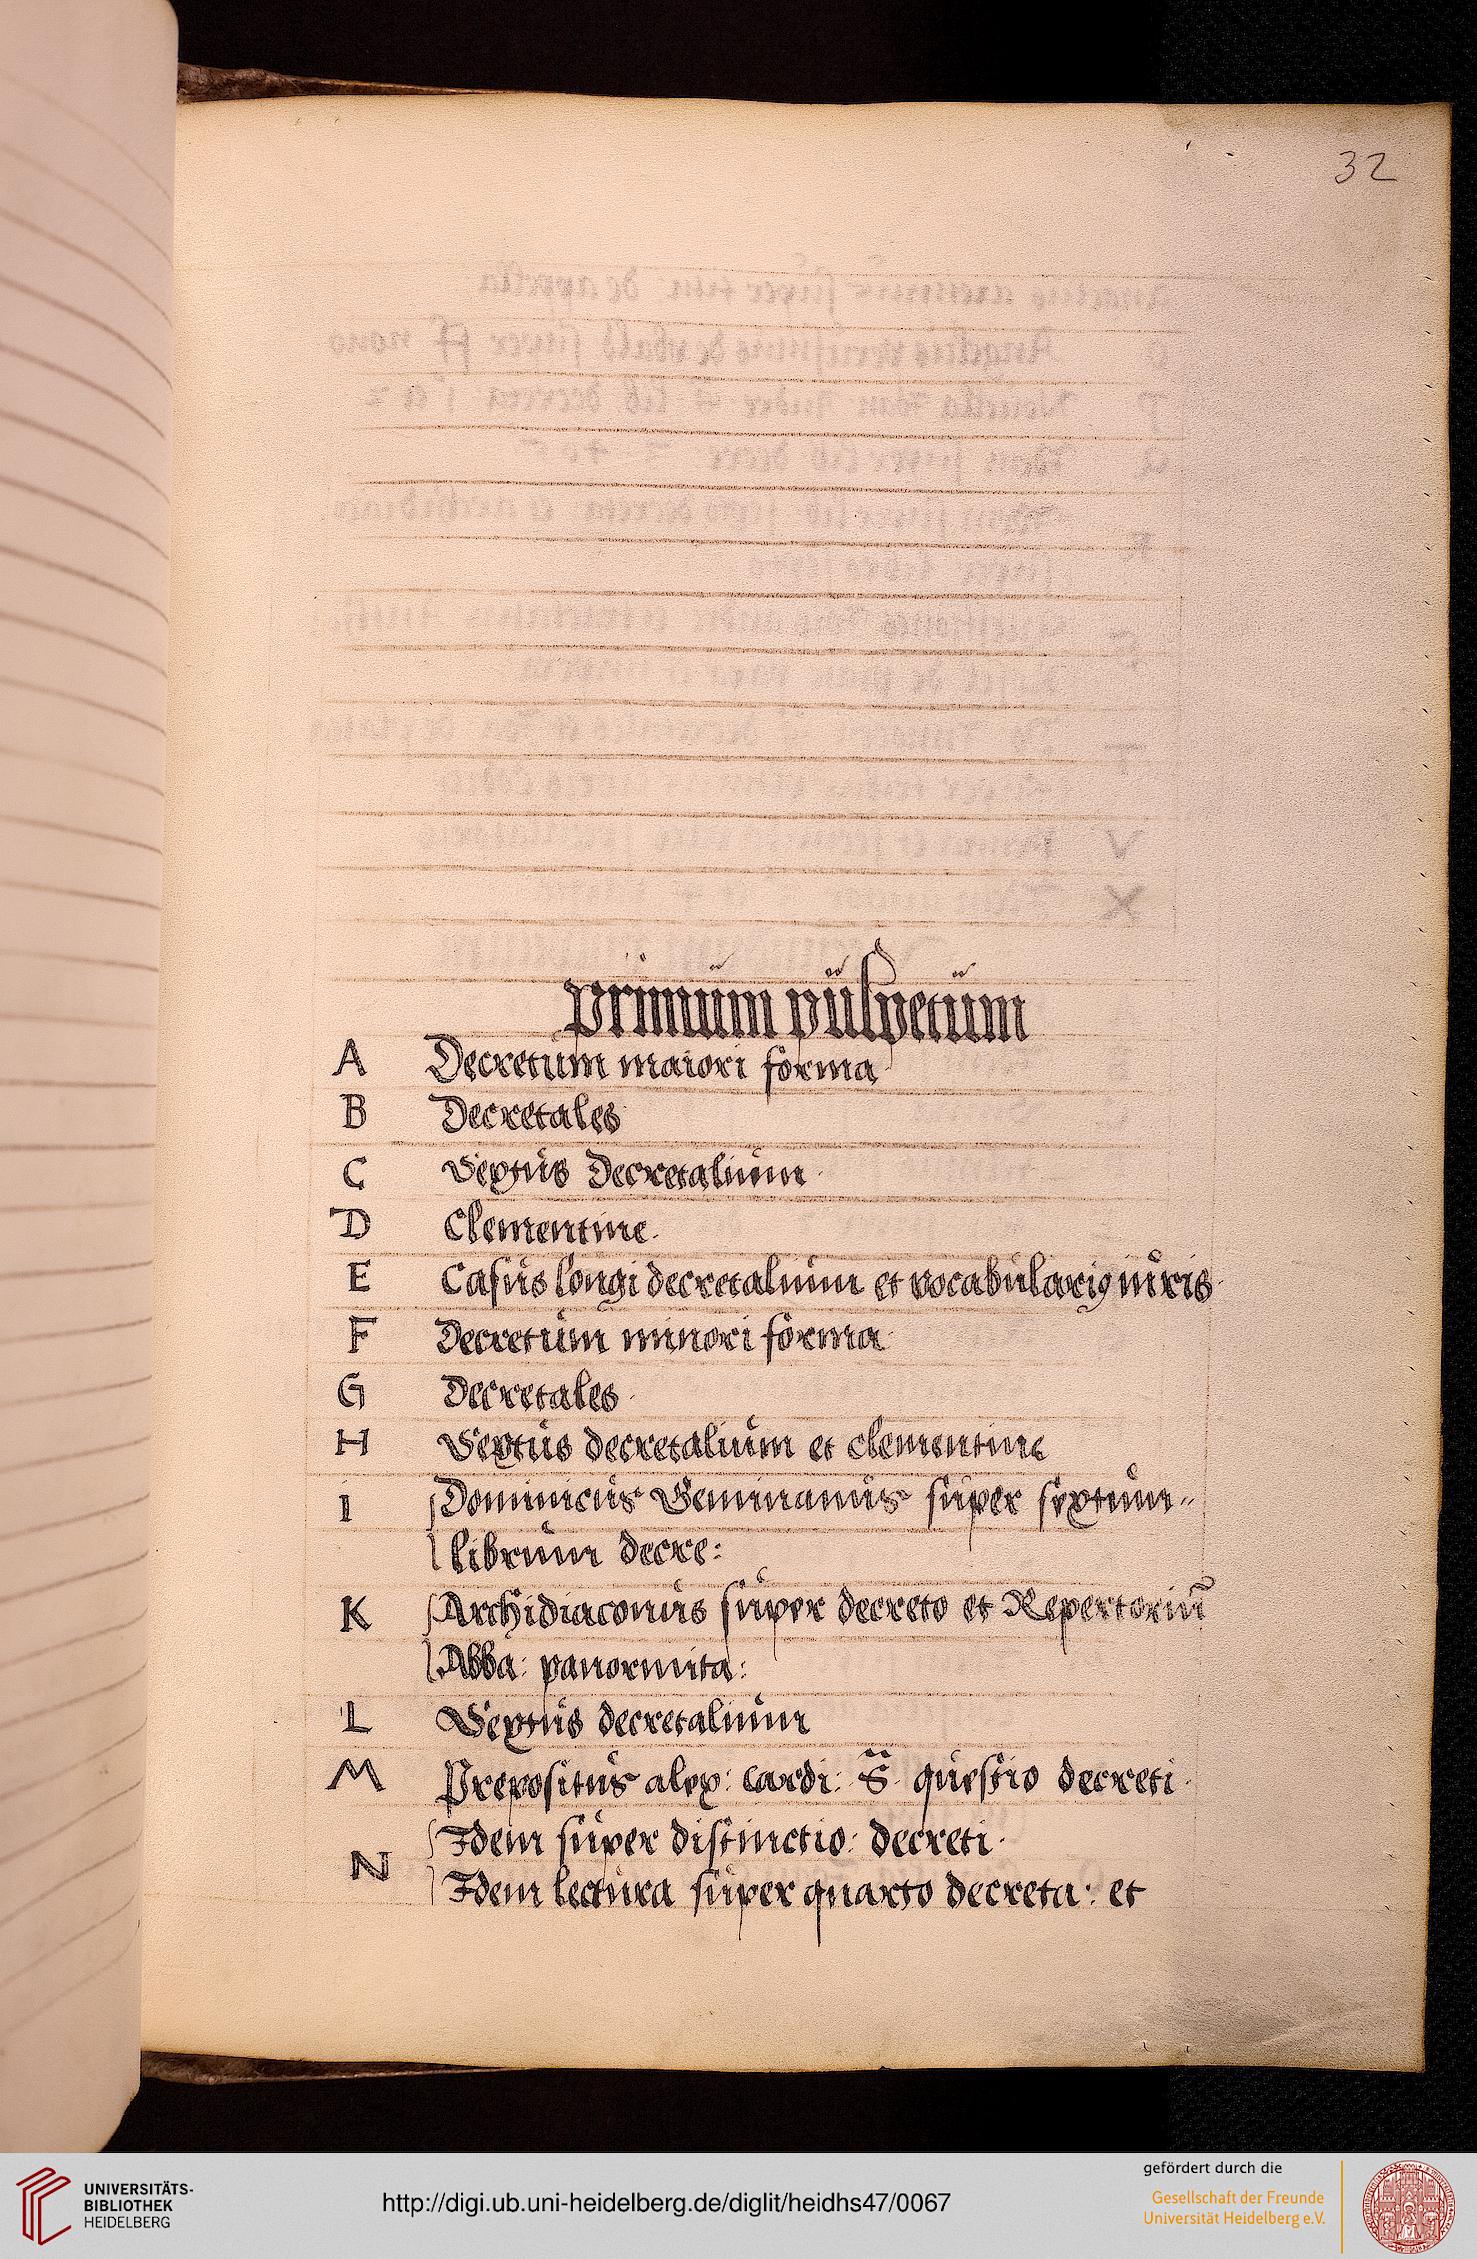 32
primum pulpetum
A Decretum maiori forma
B Decretales
C Sextus Decretalium
D Clementine
E Casus longi decretalium et vocabulariꝰ iuris
F Decretum minori forma
G Decretales
H Sextus decretalium et clementine
I Dominicus Geminianus super sextum
librum decre:
K Archidiaconus super decreto et Repertoriū
Abba: panormita:
L Sextus decretalium
M Prepositus alex: cardi: S. questio decreti
Idem super distinctio: decreti
N
Idem lectura super quarto decreta: et
UNIVERSITÄTS-
BIBLIOTHEK
HEIDELBERG
http://digi.ub.uni-heidelberg.de/diglit/heidhs47/0067
gefördert durch die
Gesellschaft der Freunde
Universität Heidelberg e.V.